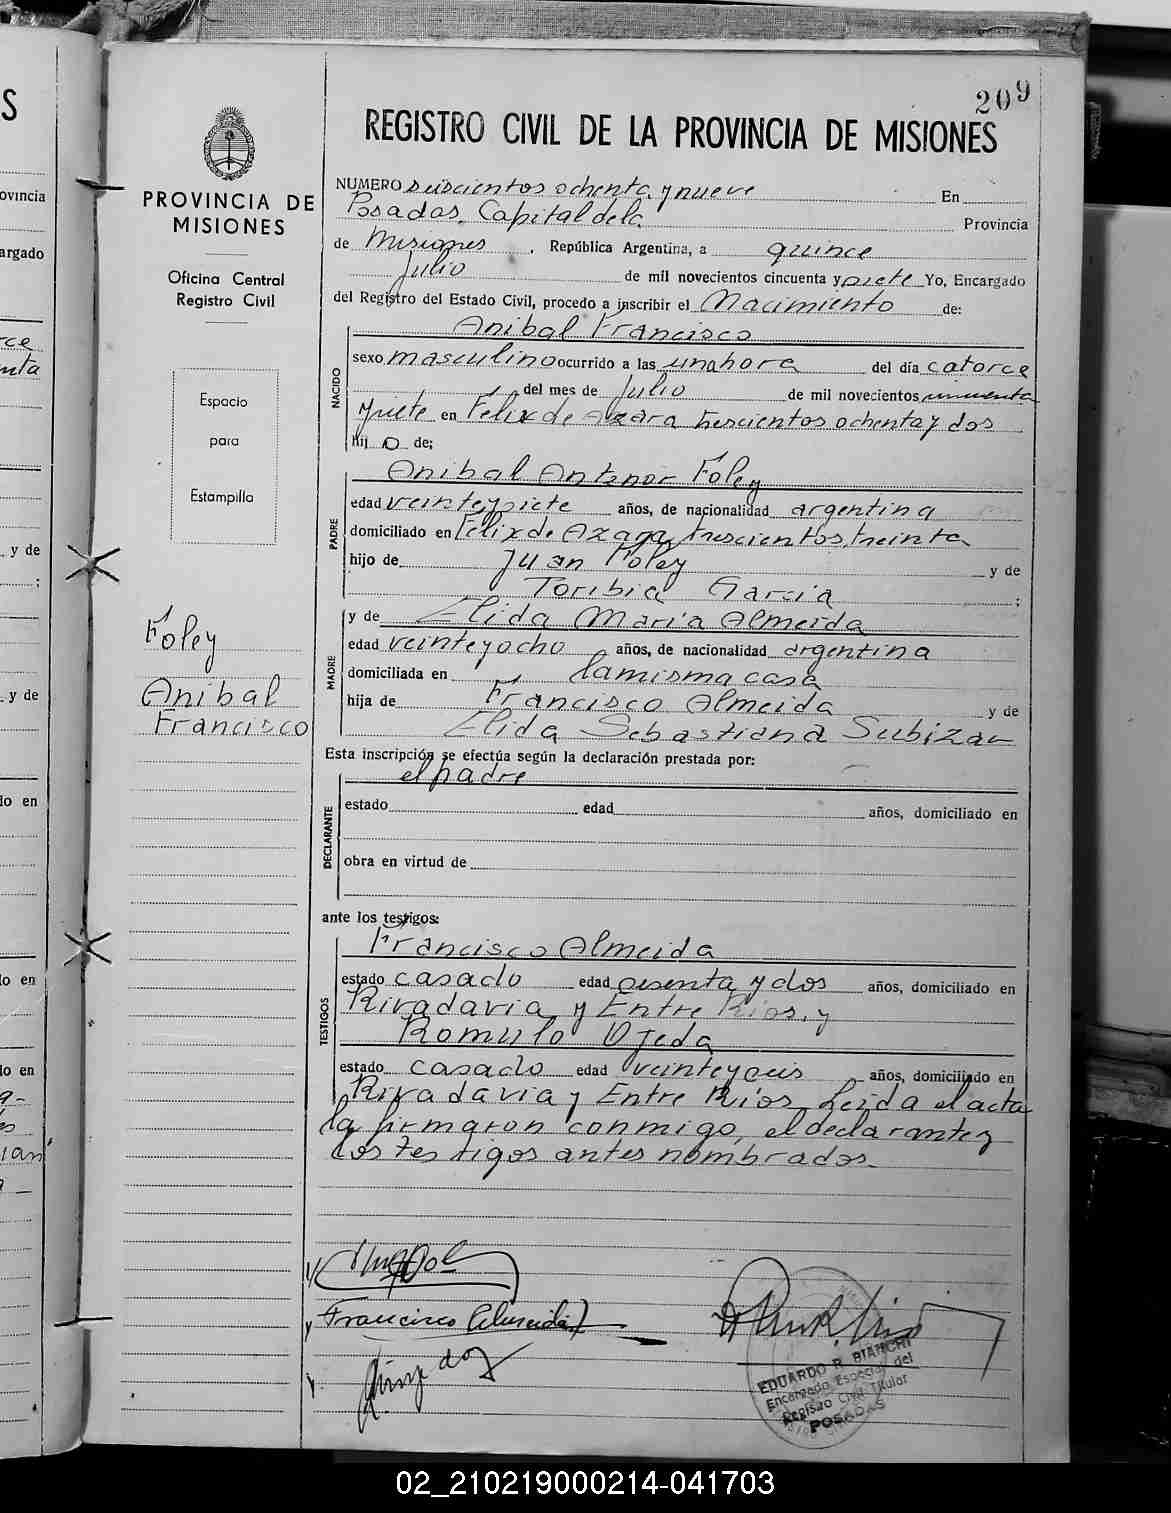 209
REGISTRO CIVIL DE LA PROVINCIA DE MISIONES
PROVINCIA DE
MISIONES
Oficina Central
Registro Civil
Espacio
para
Estampilla
Foley
Anibal
Francisco
NUMERO seiscientos ochenta y nueve En
Posadas, Capital de la Provincia
de Misiones, República Argentina, a quince
Julio de mil novecientos cincuenta y siete Yo, Encargado
del Registro del Estado Civil, procedo a inscribir el Nacimiento de:
Anibal Francisco
NACIDO
sexo masculino ocurrido a las una hora del día catorce
del mes de Julio de mil novecientos cincuenta
y siete en Félix de Azara trescientos ochenta y dos
hijo de:
Anibal Antenor Foley
PADRE
edad veinte y siete años, de nacionalidad argentina
domiciliado en Félix de Azara, trescientos treinta
hijo de Juan Foley y de
Toribia Garcia ;
y de Elida Maria Almeida
MADRE
edad veinte y ocho años, de nacionalidad argentina
domiciliada en la misma casa
hija de Francisco Almeida y de
Elida Sebastiana Subizar
Esta inscripción se efectúa según la declaración prestada por:
el padre
DECLARANTE
estado edad años, domiciliado en
obra en virtud de
ante los testigos:
Francisco Almeida
TESTIGOS
estado casado edad sesenta y dos años, domiciliado en
Rivadavia y Entre Rios, y
Romulo Ojeda
estado casado edad veinte y seis años, domiciliado en
Rivadavia y Entre Rios. Leida el acta
la firmaron conmigo, el declarante y
los testigos antes nombrados.
Francisco Almeida
EDUARDO R. BIANCHI
Encargado Especial del
Registro Civil Titular
POSADAS
02_210219000214-041703